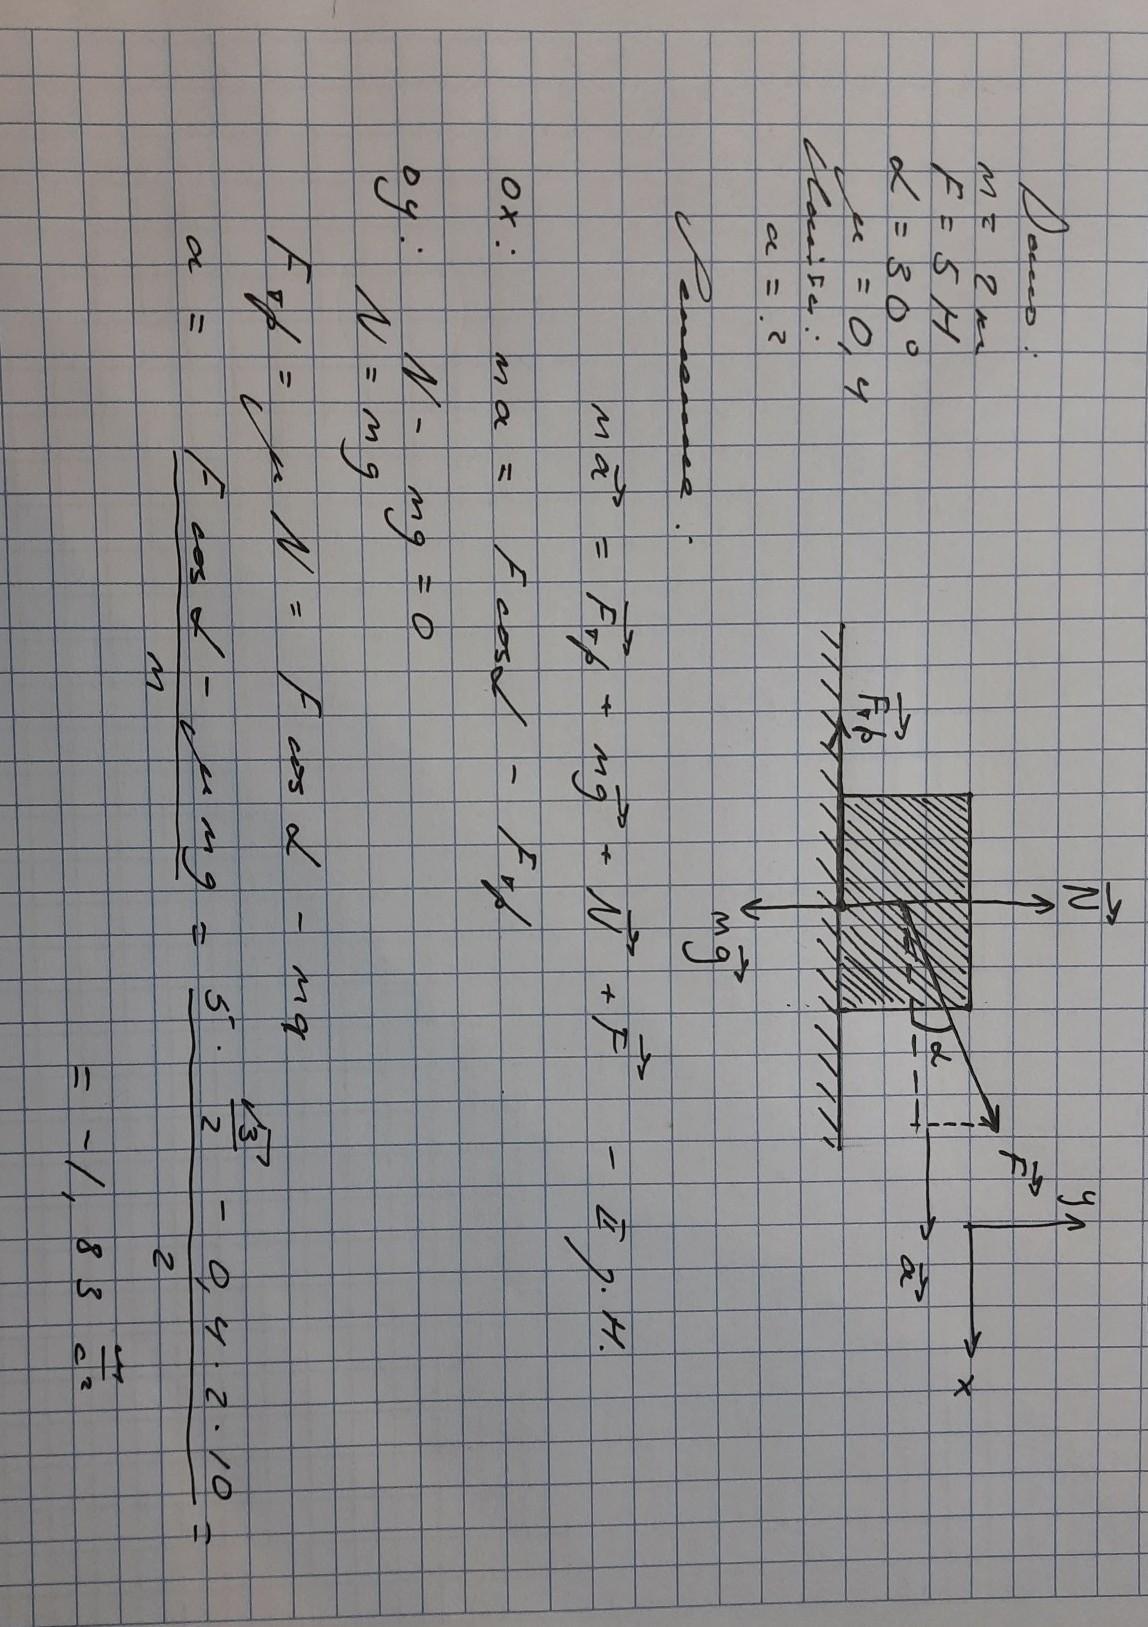 Дано:
m = 2 кг
F = 5 Н
α = 30°
μ = 0,4
Найти:
a = ?
N
F
α
Fтр
mg
a
y
x
Решение:
ma = Fтр + mg + N + F - II з. Н.
ox: ma = F cosα - Fтр
oy: N - mg = 0
N = mg
Fтр = μN = F cos α - mg
a = (F cos α - μmg)/m = (5 · √3/2 - 0,4 · 2 · 10)/2 =
= -1,83 м/с²